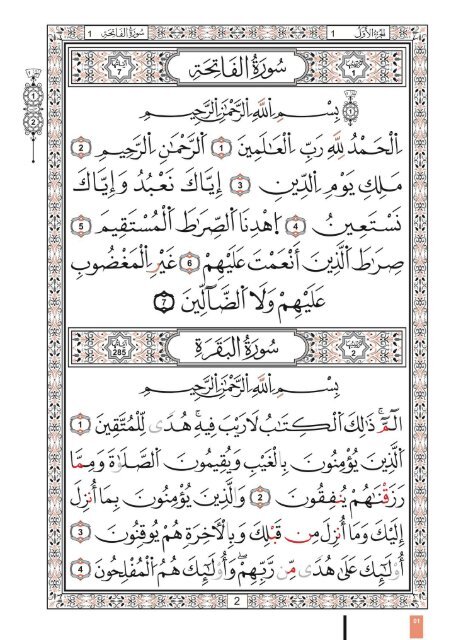 الجزء الأول 1
سورة الفاتحة 1
1 سُورَةُ الْفَاتِحَةِ 7
بِسْمِ اِللَّهِ اِلرَّحْمَٰنِ اِلرَّحِيمِ
اِلْحَمْدُ لِلَّهِ رَبِّ اِلْعَٰلَمِينَ 1 اَلرَّحْمَٰنِ اِلرَّحِيمِ 2
مَلِكِ يَوْمِ اِلدِّينِ 3 إِيَّاكَ نَعْبُدُ وَإِيَّاكَ
نَسْتَعِينُ 4 اَهْدِنَا اَلصِّرَٰطَ اَلْمُسْتَقِيمَ 5
صِرَٰطَ اَلَّذِينَ أَنْعَمْتَ عَلَيْهِمْ 6 غَيْرِ اِلْمَغْضُوبِ
عَلَيْهِمْ وَلَا اَلضَّآلِّينَ 7
2 سُورَةُ الْبَقَرَةِ 285
بِسْمِ اِللَّهِ اِلرَّحْمَٰنِ اِلرَّحِيمِ
أَلَٓمِّٓ ذَٰلِكَ اَلْكِتَٰبُ لَا رَيْبَ فِيهِ هُدًى لِّلْمُتَّقِينَ 1
اَلَّذِينَ يُؤْمِنُونَ بِالْغَيْبِ وَيُقِيمُونَ اَلصَّلَوٰةَ وَمِمَّا
رَزَقْنَٰهُمْ يُنفِقُونَ 2 وَالَّذِينَ يُؤْمِنُونَ بِمَا أُنزِلَ
إِلَيْكَ وَمَا أُنزِلَ مِن قَبْلِكَ وَبِالْأَخِرَةِ هُمْ يُوقِنُونَ 3
أُوْلَٰٓئِكَ عَلَىٰ هُدًى مِّن رَّبِّهِمْ وَأُوْلَٰٓئِكَ هُمُ اَلْمُفْلِحُونَ 4
2
1
2
01